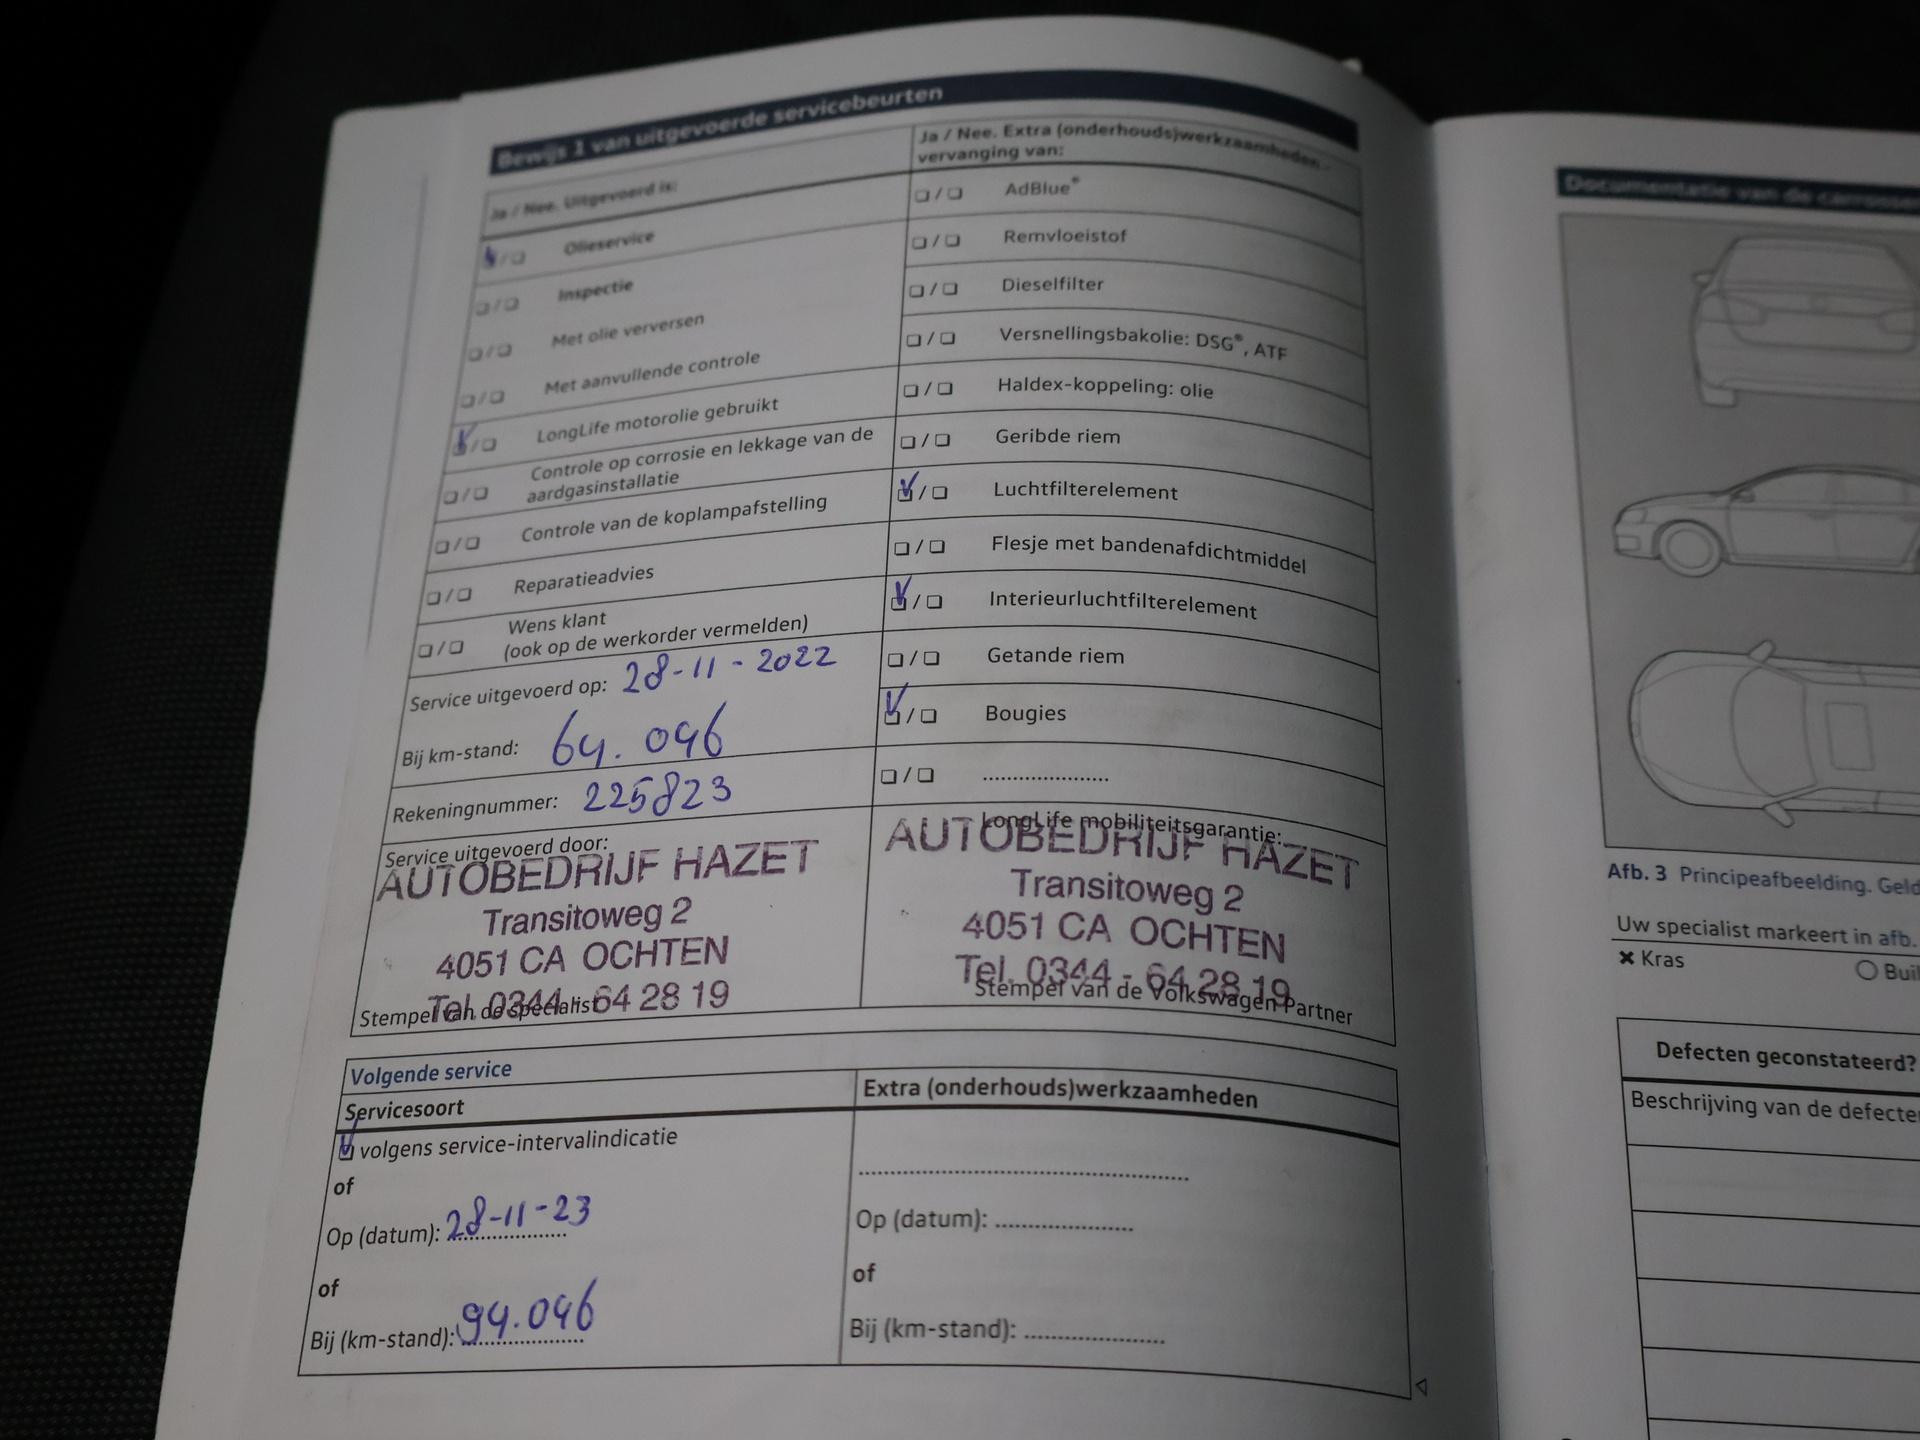 Bewijs 1 van uitgevoerde servicebeurten
Ja / Nee. Uitgevoerd is:
Olieservice
Inspectie
Met olie verversen
Met aanvullende controle
LongLife motorolie gebruikt
Controle op corrosie en lekkage van de
aardgasinstallatie
Controle van de koplampafstelling
Reparatieadvies
Wens klant
(ook op de werkorder vermelden)
Service uitgevoerd op: 28-11-2022
Bij km-stand: 64.046
Rekeningnummer: 225823
Service uitgevoerd door:
AUTOBEDRIJF HAZET
Transitoweg 2
4051 CA OCHTEN
Tel. 0344 - 64 28 19
Stempel van de specialist
Ja / Nee. Extra (onderhouds)werkzaamheden -
vervanging van:
AdBlue®
Remvloeistof
Dieselfilter
Versnellingsbakolie: DSG®, ATF
Haldex-koppeling: olie
Geribde riem
Luchtfilterelement
Flesje met bandenafdichtmiddel
Interieurluchtfilterelement
Getande riem
Bougies
LongLife mobiliteitsgarantie:
AUTOBEDRIJF HAZET
Transitoweg 2
4051 CA OCHTEN
Tel. 0344 - 64 28 19
Stempel van de Volkswagen Partner
Volgende service
Servicesoort
volgens service-intervalindicatie
of
Op (datum): 28-11-23
of
Bij (km-stand): 94.046
Extra (onderhouds)werkzaamheden
Op (datum):
of
Bij (km-stand):
Documentatie van de
Afb. 3 Principeafbeelding.
Uw specialist markeert in afb.
Kras
Defecten geconstateerd?
Beschrijving van de